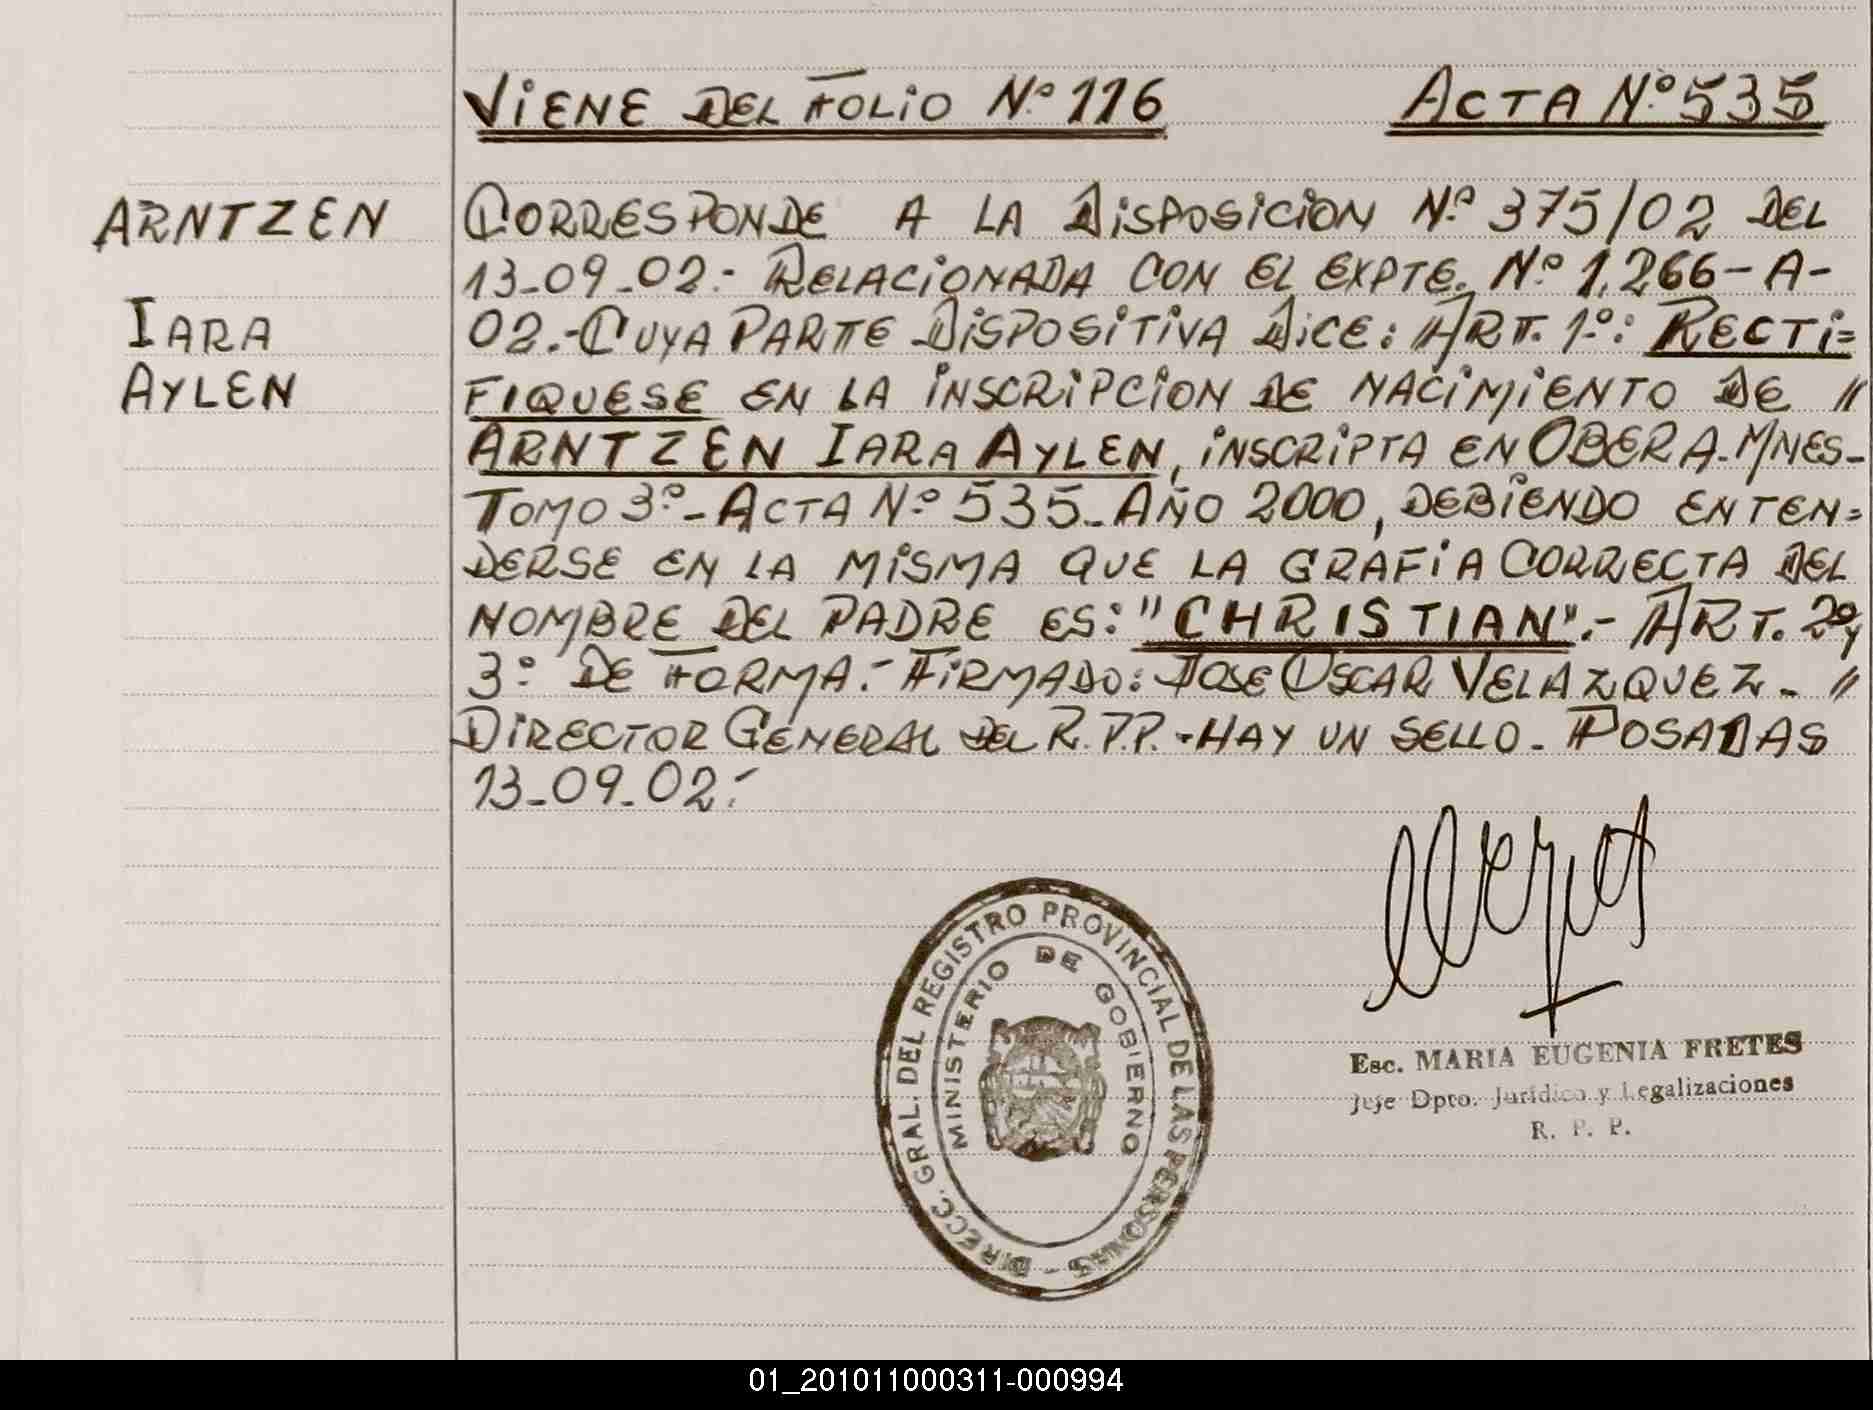 VIENE DEL FOLIO Nº 116 ACTA Nº 535
ARNTZEN
IARA
AYLEN
CORRESPONDE A LA DISPOSICION Nº 375/02 DEL
13-09-02.- RELACIONADA CON EL EXPTE. Nº 1.266-A-
02.- CUYA PARTE DISPOSITIVA DICE: ART. 1º: RECTI=
FIQUESE EN LA INSCRIPCION DE NACIMIENTO DE "
ARNTZEN IARA AYLEN, INSCRIPTA EN OBERA-MNES-
TOMO 3º- ACTA Nº 535- AÑO 2000, DEBIENDO ENTEN=
DERSE EN LA MISMA QUE LA GRAFIA CORRECTA DEL
NOMBRE DEL PADRE ES: "CHRISTIAN".- ART. 2º y
3º DE FORMA.- FIRMADO: JOSE OSCAR VELAZQUEZ- "
DIRECTOR GENERAL DEL R.P.P.- HAY UN SELLO- POSADAS
13-09-02.-
DIRECC. GRAL. DEL REGISTRO PROVINCIAL DE LAS PERSONAS -
MINISTERIO DE GOBIERNO
Esc. MARIA EUGENIA FRETES
Jefe Dpto. Jurídico y Legalizaciones
R. P. P.
01_201011000311-000994